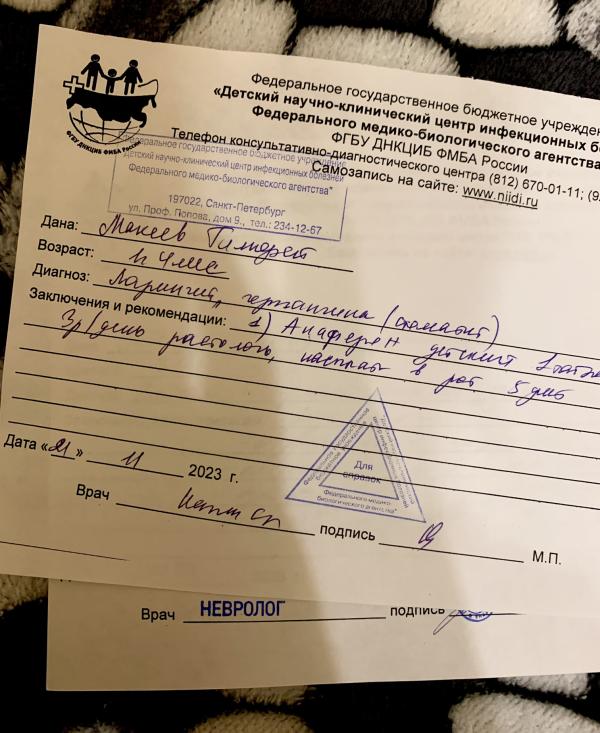 Федеральное государственное бюджетное учрежден
«Детский научно-клинический центр инфекционных бо
Федерального медико-биологического агентства
ФГБУ ДНКЦИБ ФМБА России
Телефон консультативно-диагностического центра (812) 670-01-11; (9
Самозапись на сайте: www.niidi.ru
ФГБУ ДНКЦИБ ФМБА России
Федеральное государственное бюджетное учреждение
"Детский научно-клинический центр инфекционных болезней
Федерального медико-биологического агентства"
197022, Санкт-Петербург
ул. Проф. Попова, дом 9., тел.: 234-12-67
Дана: Макеев Тимофей
Возраст:
Диагноз: Ларингит, герпангина (стоматит)
Заключения и рекомендации: 1) Анаферон детский 1 табл
3р/день растолочь, насыпать в рот 5 дней
Дата « » 11 2023 г.
Для
справок
Федерального медико-
биологического агентства"
Врач подпись М.П.
Врач НЕВРОЛОГ подпись